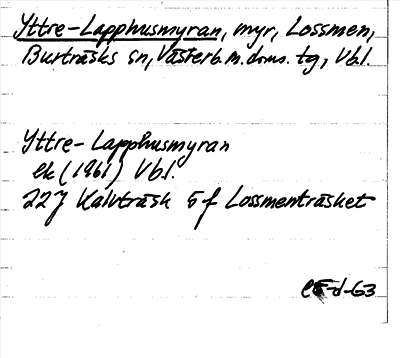 Yttre-Lapphusmyran, myr, Lossmen,
Burträsks sn, Västerb.m.doms. tg, Vb.l.
Yttre-Lapphusmyran
ek (1961) Vb.l.
22J Kalvträsk 5 f Lossmenträsket